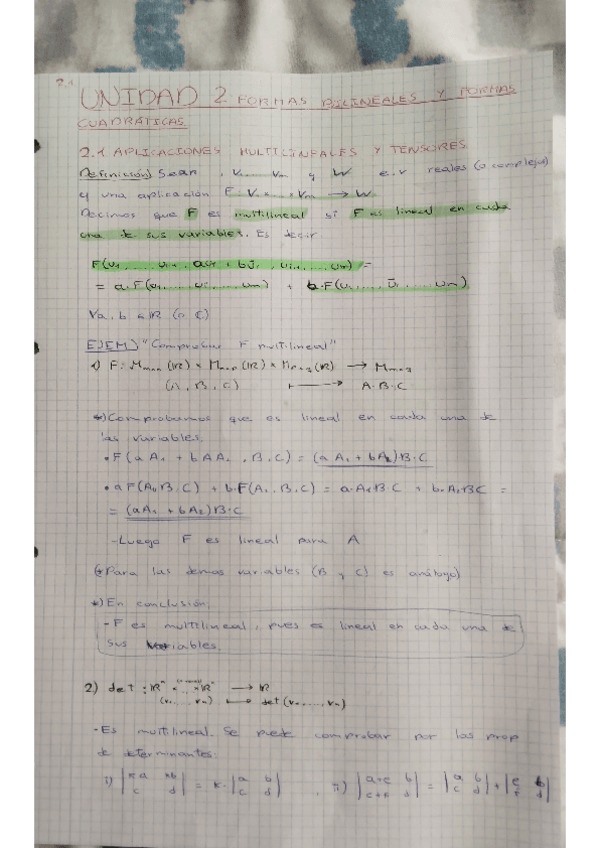 2.1
UNIDAD 2 FORMAS BILINEALES Y FORMAS
CUADRÁTICAS.
2.1 APLICACIONES MULTILINEALES Y TENSORES
Definición) Sean V₁, ..., Vₘ y W e.v reales (o complejo)
y una aplicación F: V₁ × ... × Vₘ → W
Decimos que F es multilineal si F es lineal en cada
una de sus variables. Es decir
F(u₁, ..., auᵢ + būᵢ, uᵢ₊₁, ..., uₘ) =
= a·F(u₁, ..., uᵢ, ..., uₘ) + b·F(u₁, ..., ūᵢ, ..., uₘ)
∀a, b ∈ ℝ (o ℂ)
EJEM) "Comprobar F multilineal"
1) F: Mₘₓₙ(ℝ) × Mₙₓₚ(ℝ) × Mₚₓq(ℝ) → Mₘₓq
(A, B, C) ⟼ A·B·C
*) Comprobamos que es lineal en cada una de
las variables.
• F(aA₁ + bAA₂, B, C) = (aA₁ + bA₂)B·C
• aF(A₁, B, C) + b·F(A₂, B, C) = a·A₁B·C + b·A₂BC =
= (aA₁ + bA₂)B·C
- Luego F es lineal para A
(*Para las demas variables (B y C) es análogo)
*) En conclusión;
- F es multilineal, pues es lineal en cada una de
sus variables.
2) det : ℝⁿ × ... × ℝⁿ → ℝ
(v₁, ..., vₙ) ⟼ det(v₁, ..., vₙ)
- Es multilineal. Se puede comprobar por las prop
de determinantes:
i) |κa κb; c d| = κ·|a b; c d| , ii) |a+e b; c+f d| = |a b; c d| + |e b; f d|